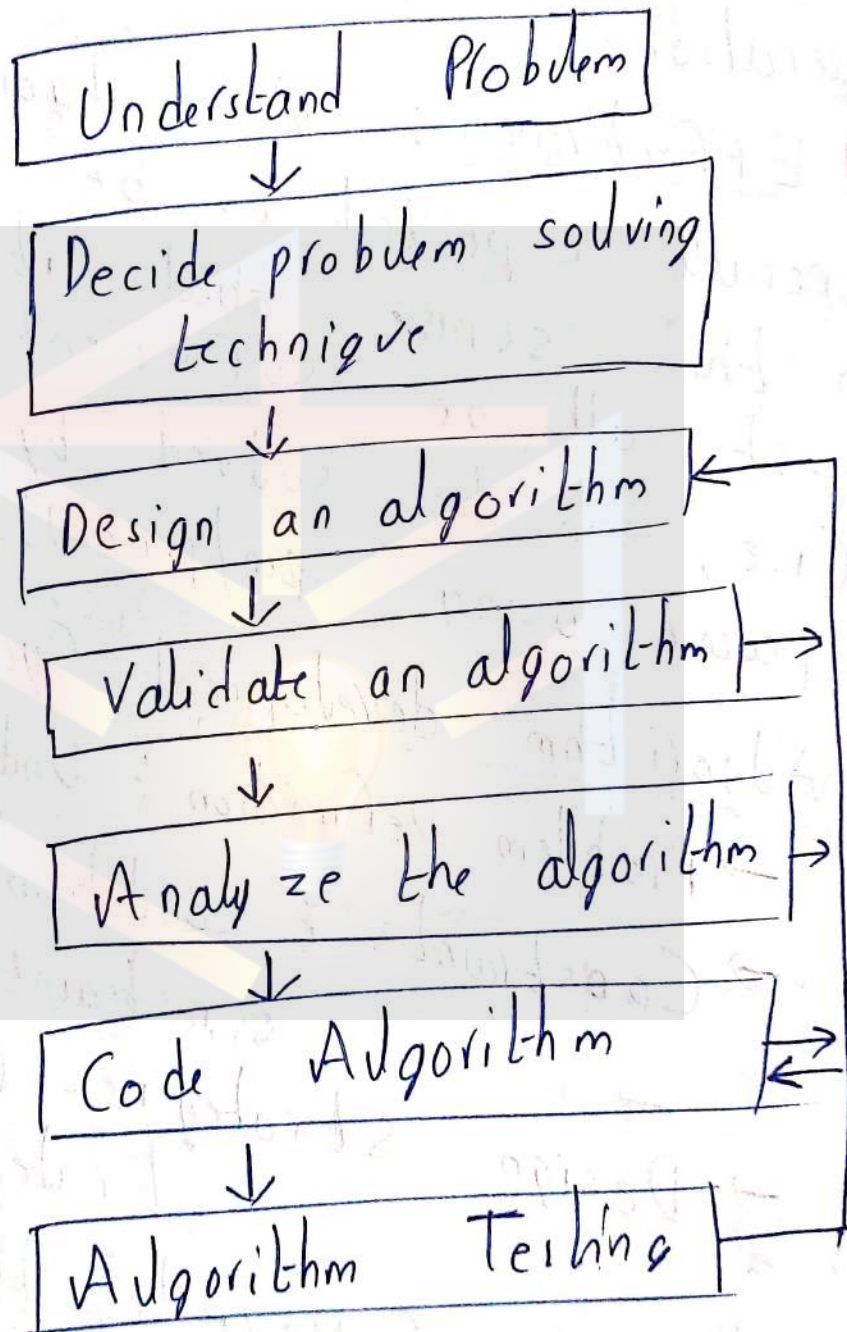 Understand Problem
Decide problem solving
technique
Design an algorithm
Validate an algorithm
Analyze the algorithm
Code Algorithm
Algorithm Testing